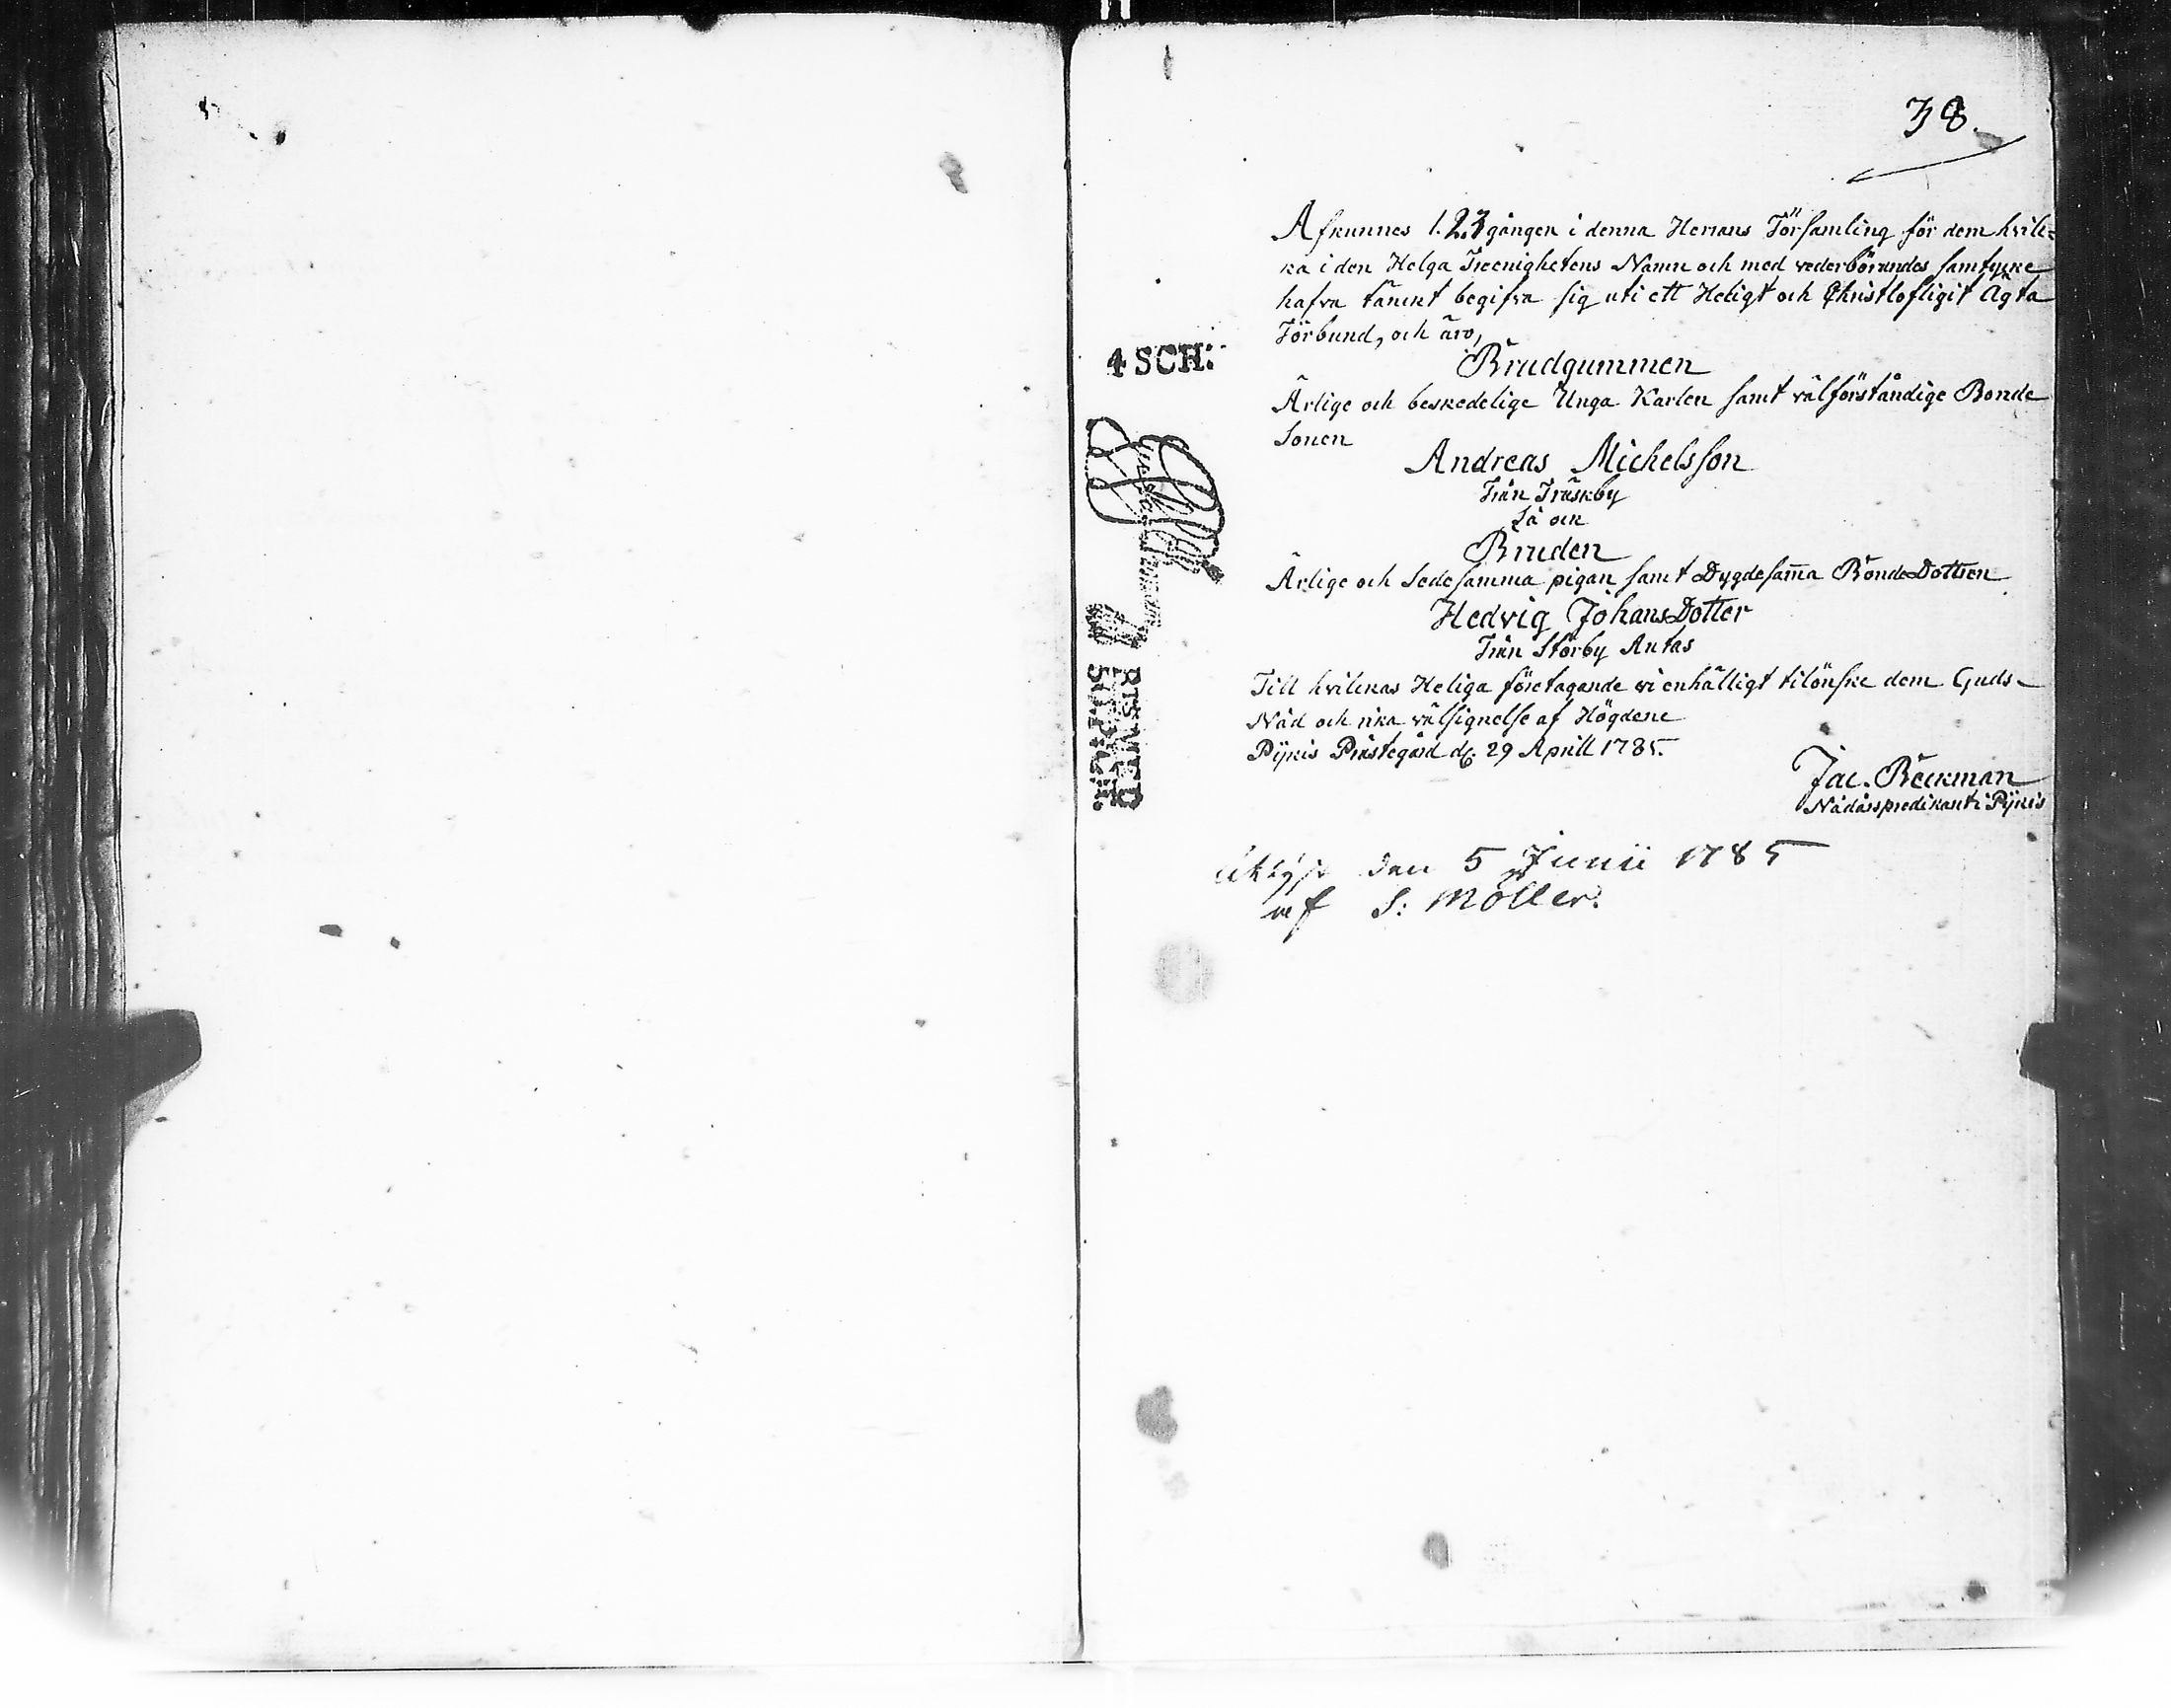 38.
Afkunnes 1.2.3 gången i denna Herrans Församling för dem hvil=
ka i den Helga Treenighetens Namn och med vederbörandes samtycke
hafva tänckt begifva sig uti ett Heligt och Christlofligit Ägta
Förbund, och äro,
4 SCH:
Brudgummen
Ärlige och beskedelige Unga Karlen samt välförståndige Bonde
Sonen
Andreas Michelsson
Från Träskby
Så ock
Bruden
Ärlige och Sedesamma pigan samt Dygdesam̅a BondeDottren
Hedvig JohansDotter
Från Storby Antas
Till hvilckas Heliga företagande vi enhälligt tilönske dem Guds
Nåd och rika välsignelse af Högdene
Pijkis Prästegård d. 29 Aprill 1785.
Jac. Beckman
Nådårspredikant i Pijkis
RTSMED
5 RUNST.
den 5 Junii 1785
af S: Möller.